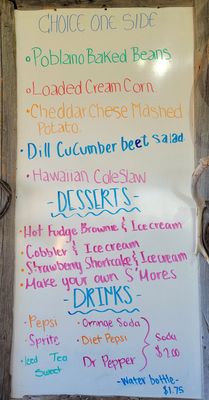 CHOICE ONE SIDE
• Poblano Baked Beans
• Loaded Cream Corn
• Cheddar Chese Mashed
Potato.
• Dill Cucumber beet Salad
• Hawaiian Coleslaw
- DESSERTS -
• Hot Fudge Brownie & Ice cream
• Cobbler & Ice cream
• Strawberry Shortcake & Ice cream
• Make your own S'Mores
- DRINKS -
• Pepsi
• Orange Soda
• Sprite
• Diet Pepsi
• Iced Tea
Sweet
Dr Pepper
Soda
$2.00
- Water bottle -
$1.75